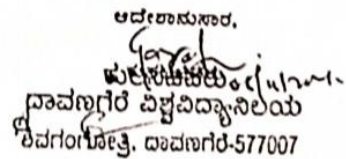 ಆದೇಶಾನುಸಾರ,
ದಾವಣಗೆರೆ ವಿಶ್ವವಿದ್ಯಾನಿಲಯ
ಶಿವಗಂಗೋತ್ರಿ, ದಾವಣಗೆರೆ-577007